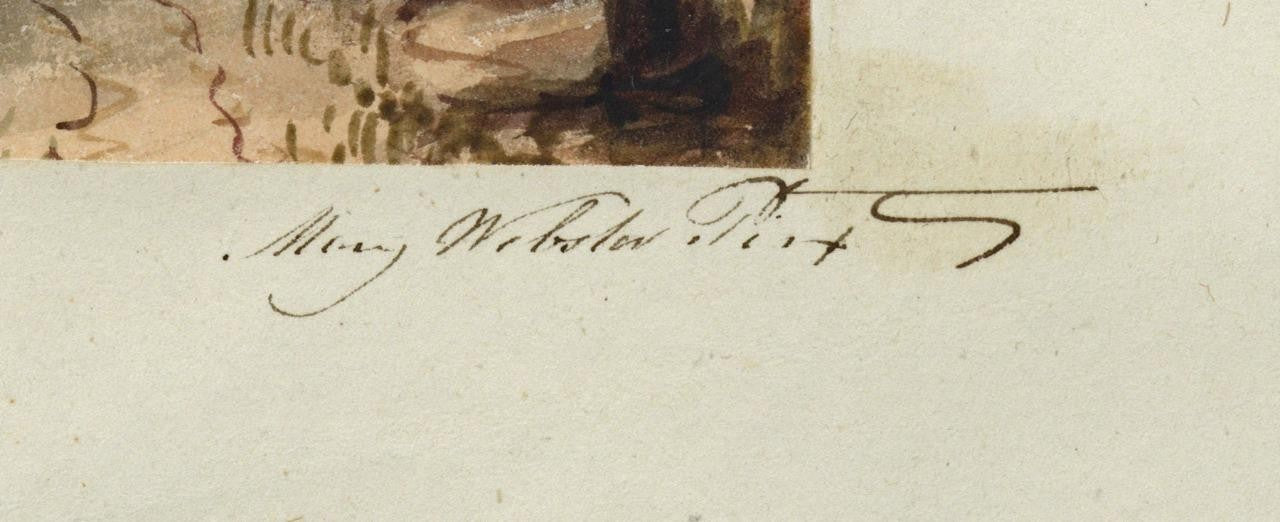 Mary Webster Pinx